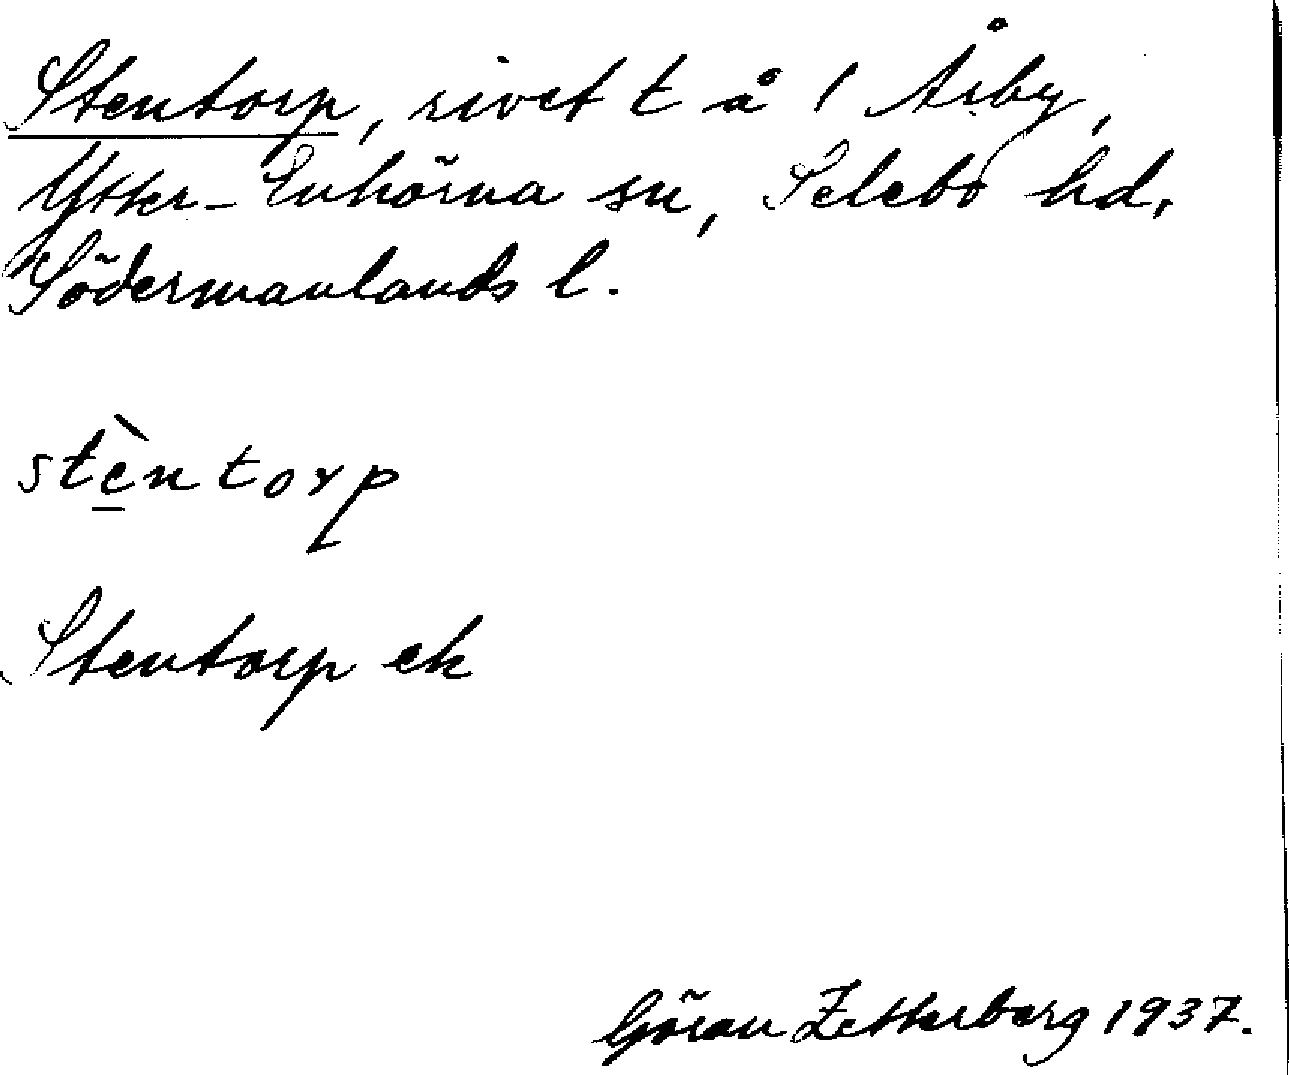 Stentorp, rivet t å 1 Årby,
Ytter-Enhörna sn, Selebo hd,
Södermanlands l.
stèntorp
Stentorp ek
Göran Zetterberg 1937.